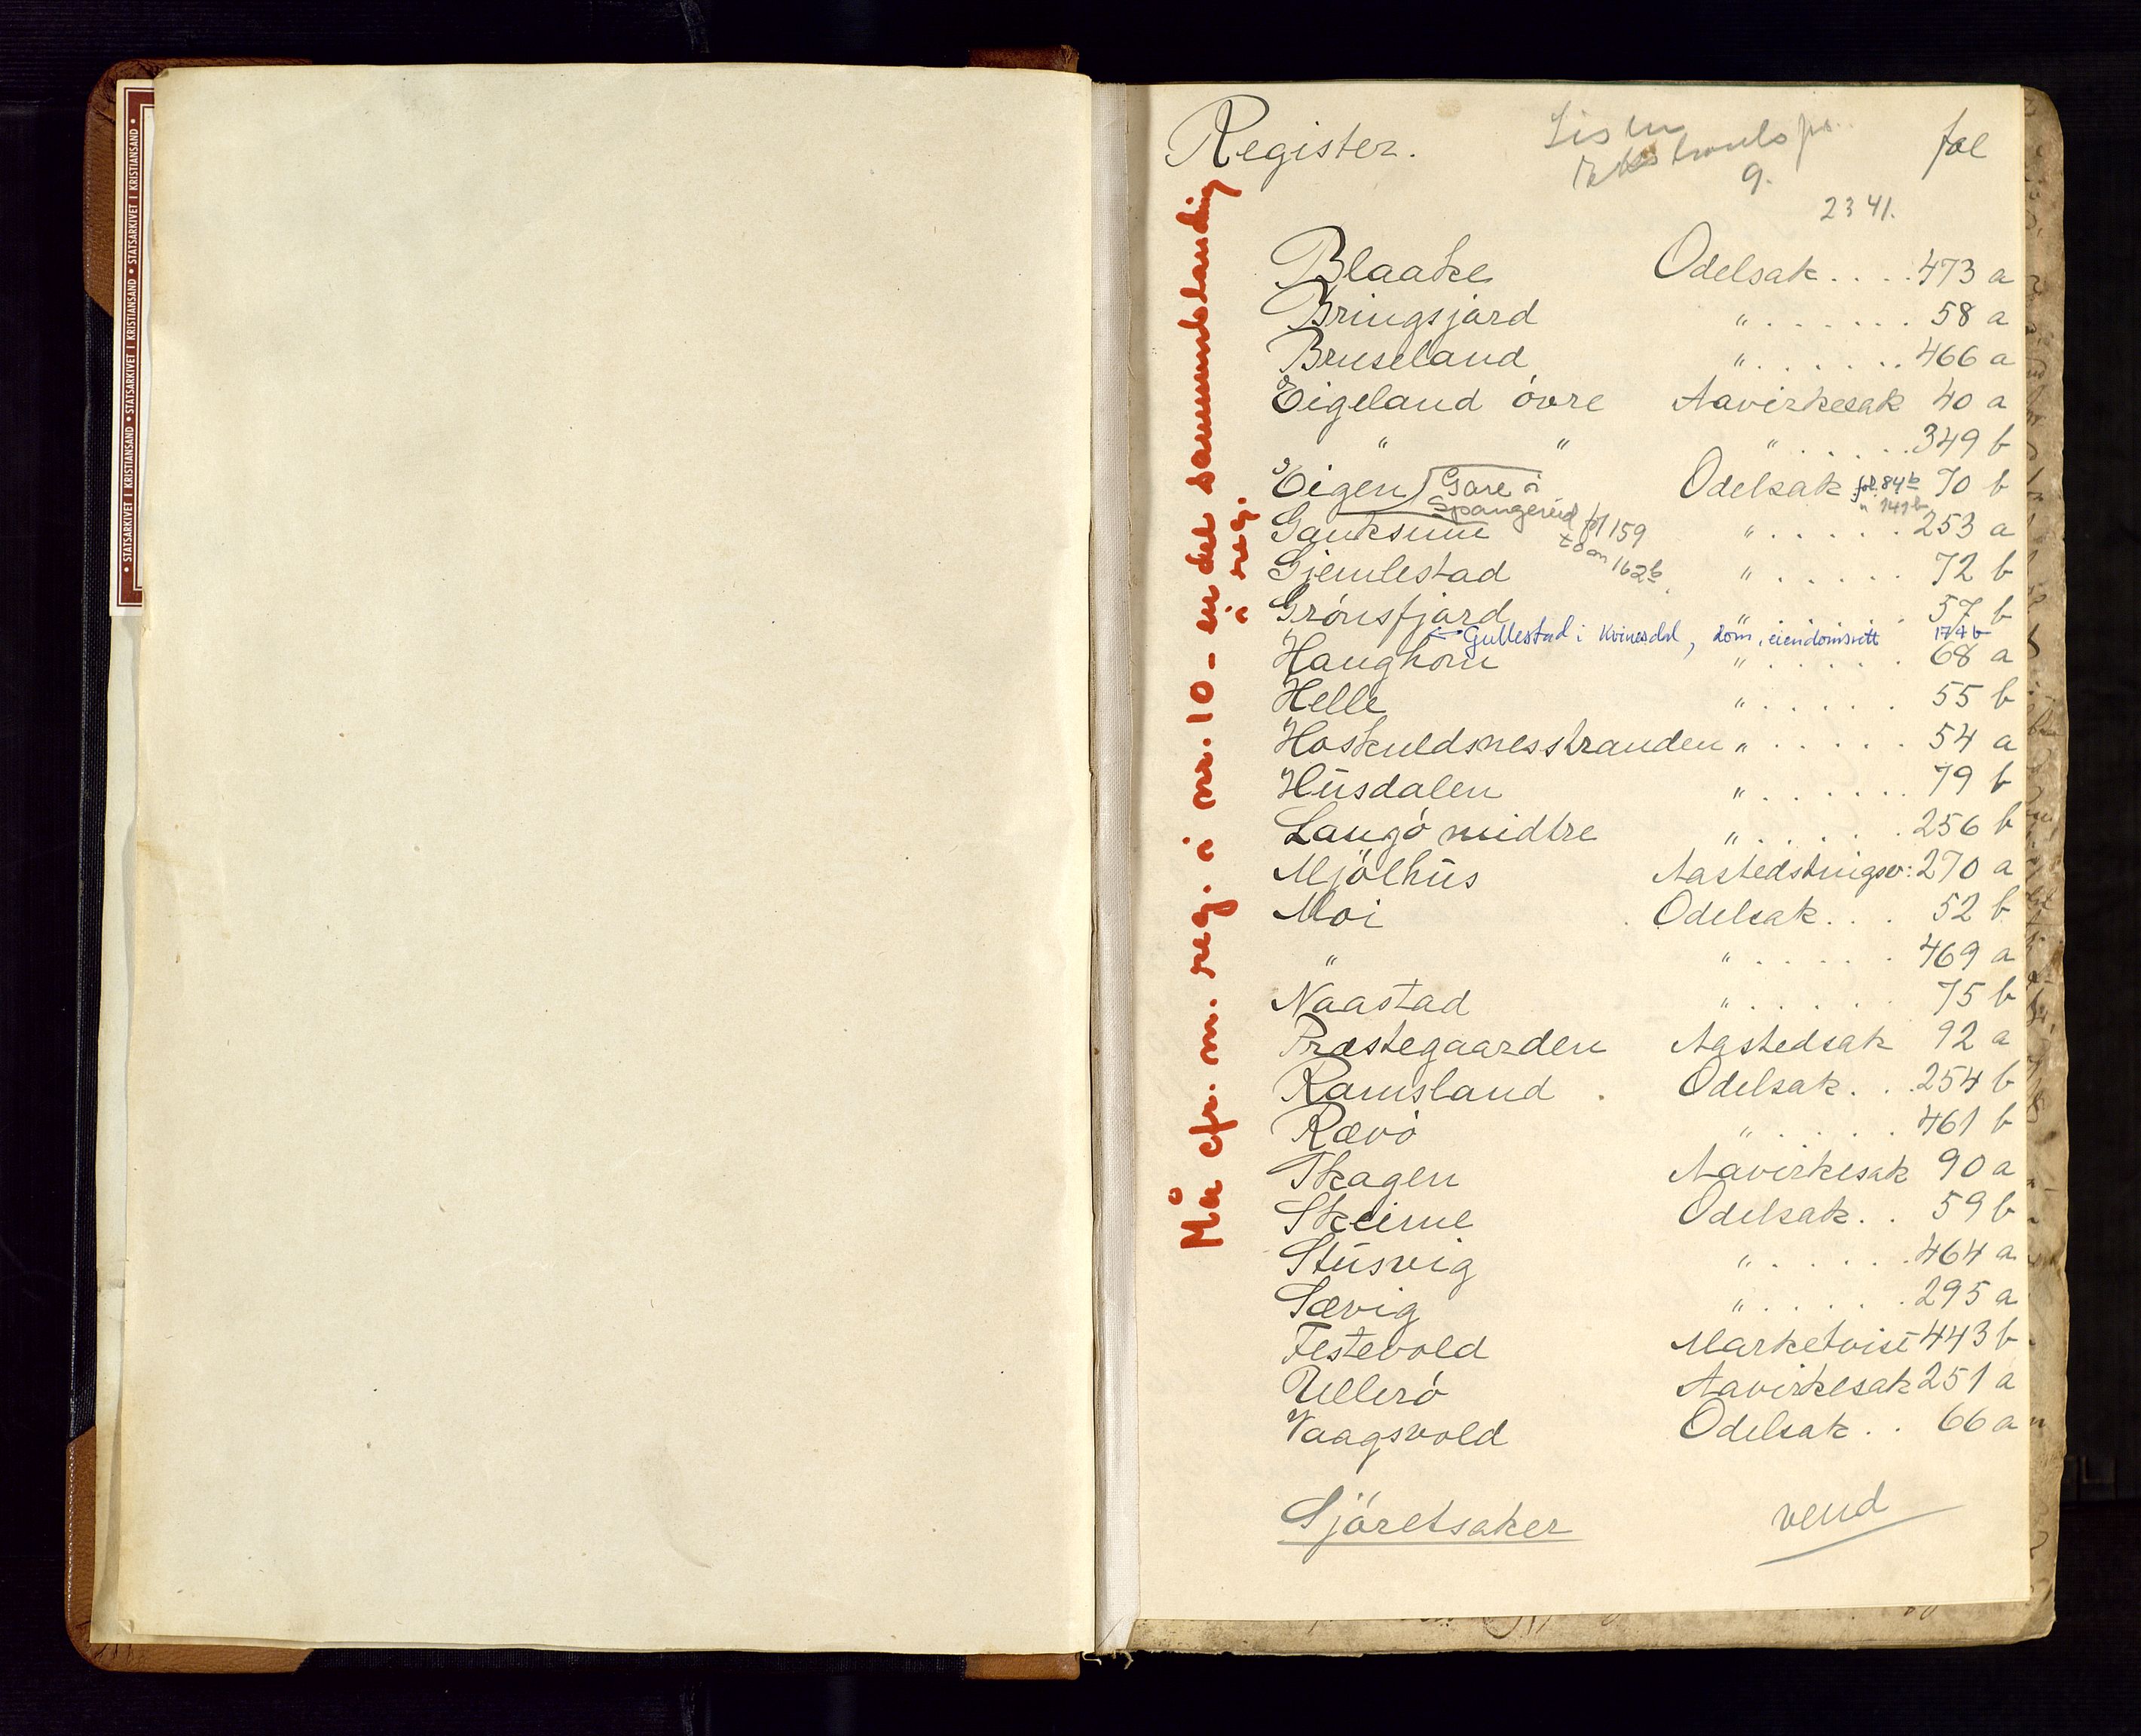 • STATSARKIVET I KRISTIANSAND • STATSARKIVET I KRISTIANSAND • STATSARKIVET I KRISTIANSAND •
Register.
Lister
9.
2341.
fol
Må cfr. m. reg. i nr. 10 - en del sammenblanding
i reg.
Blaake Odelsak .... 473 a
Bringsjord " ....... 58 a
Bruseland " ....... 466 a
Eigeland övre Aavirkesak 40 a
" " " ...... 349 b
Eigen (Gare i Spangereid fol 159 tom 162b Odelsak fol. 84b " 141b 70 b
Gauksum " ...... 253 a
Gjemlestad " ...... 72 b
Grönsfjord " 57 b
← Gullestad i Kvinesdal, dom, eiendomsrett 174 b
Haughom " ...... 68 a
Helle " ...... 55 b
Hoskuldsnesstranden " ..... 54 a
Hüsdalen " ...... 79 b
Langö midtre " ...... 256 b
Mjölhüs Aastedstingsv: 270 a
Moi Odelsak ... 52 b
" " ..... 469 a
Naastad " ...... 75 b
Præstegaarden Aastedsak 92 a
Ramsland . Odelsak ... 254 b
Rævö " ..... 461 b
Skagen Aavirkesak 90 a
Skeime Odelsak .. 59 b
Stüsvig " ...... 464 a
Sævig " ...... 295 a
Festevold Marketvist 443 b
Ullerö Aavirkesak 251 a
Vaagsvold Odelsak .. 66 a
Sjöretsaker vend